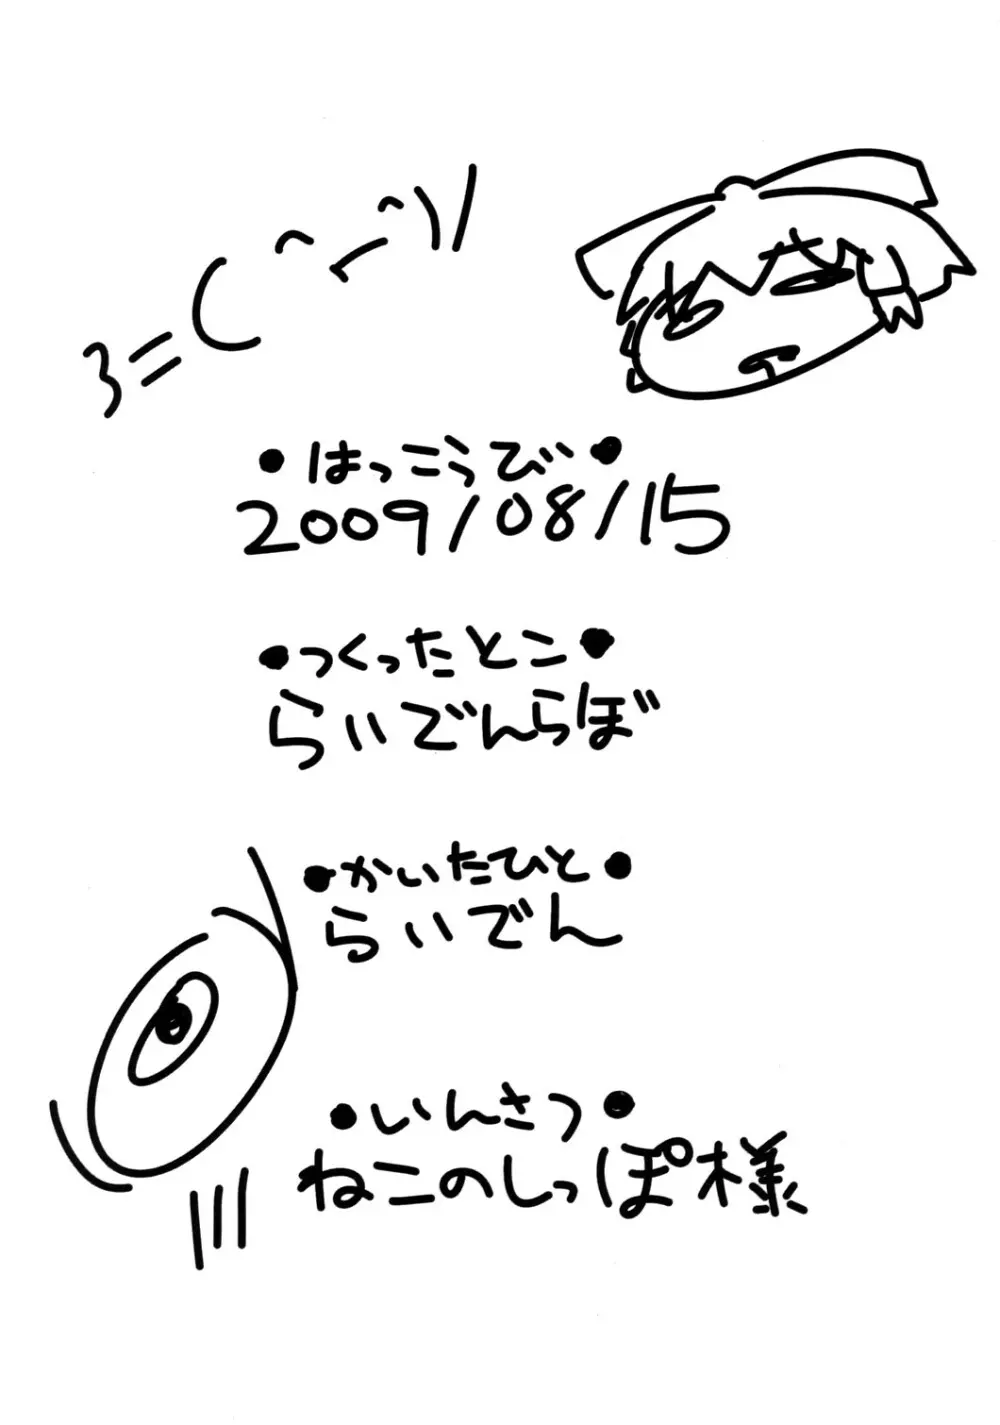 ろ=C^_^)/
•はっこうび•
2009/08/15
•つくったとこ•
らいでんらぼ
•かいたひと•
らいでん
•いんさつ•
ねこのしっぽ様